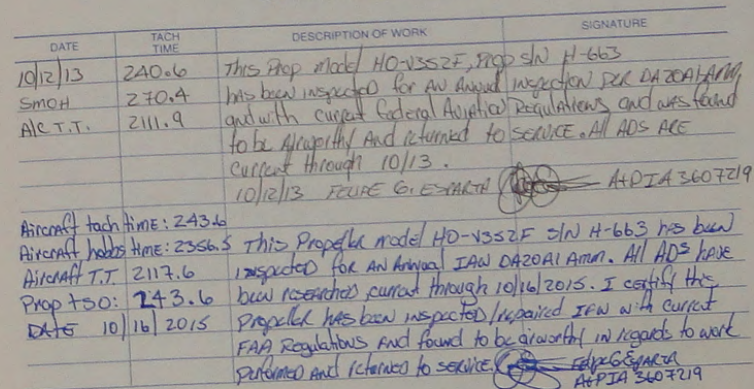 DATE TACH TIME DESCRIPTION OF WORK SIGNATURE
10/12/13 240.6 This Prop model HO-V352F, Prop S/N H-663
SMOH 270.4 has been inspected for AN Annual inspection PER DA20A1 AMM,
A/C T.T. 2111.9 and with current Federal Aviation Regulations and was found
to be Airworthy And returned to SERVICE. All ADS ARE
current through 10/13.
10/12/13 FELIPE G. ESPARTA A+P IA 3607219
Aircraft tach time: 243.6
Aircraft hobbs time: 2356.5 This Propeller model HO-V352F S/N H-663 has been
Aircraft T.T. 2117.6 inspected for AN Annual IAW DA20A1 Amm. All ADS have
Prop tSO: 243.6 been researched, current through 10/16/2015. I certify this
DATE 10/16/2015 Propeller has been inspected/repaired IAW with current
FAA Regulations And found to be airworthy in regards to work
Performed And returned to service. Felipe G ESPARTA
A+P IA 3607219